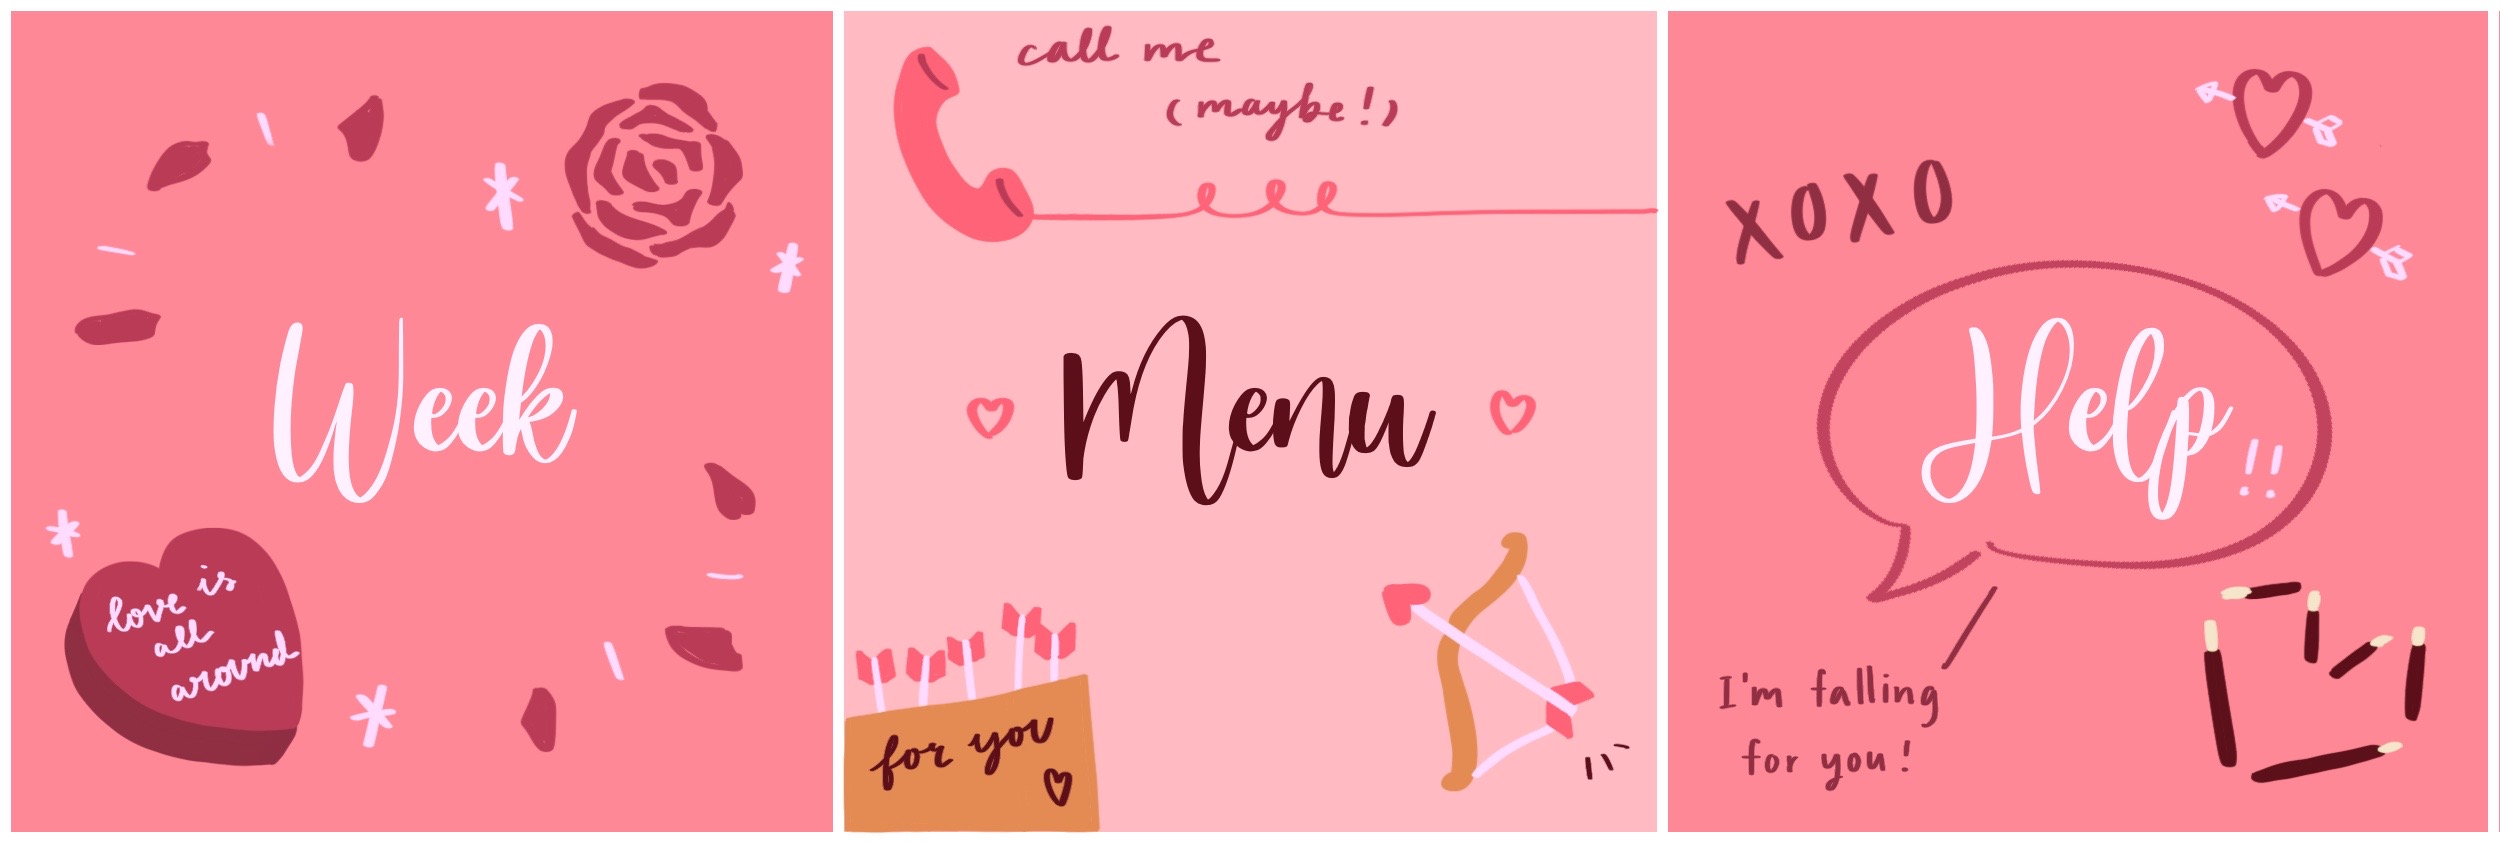 Week
love is
all
around
call me
(maybe!)
Menu
for you
XOXO
Help!!
I'm falling
for you!